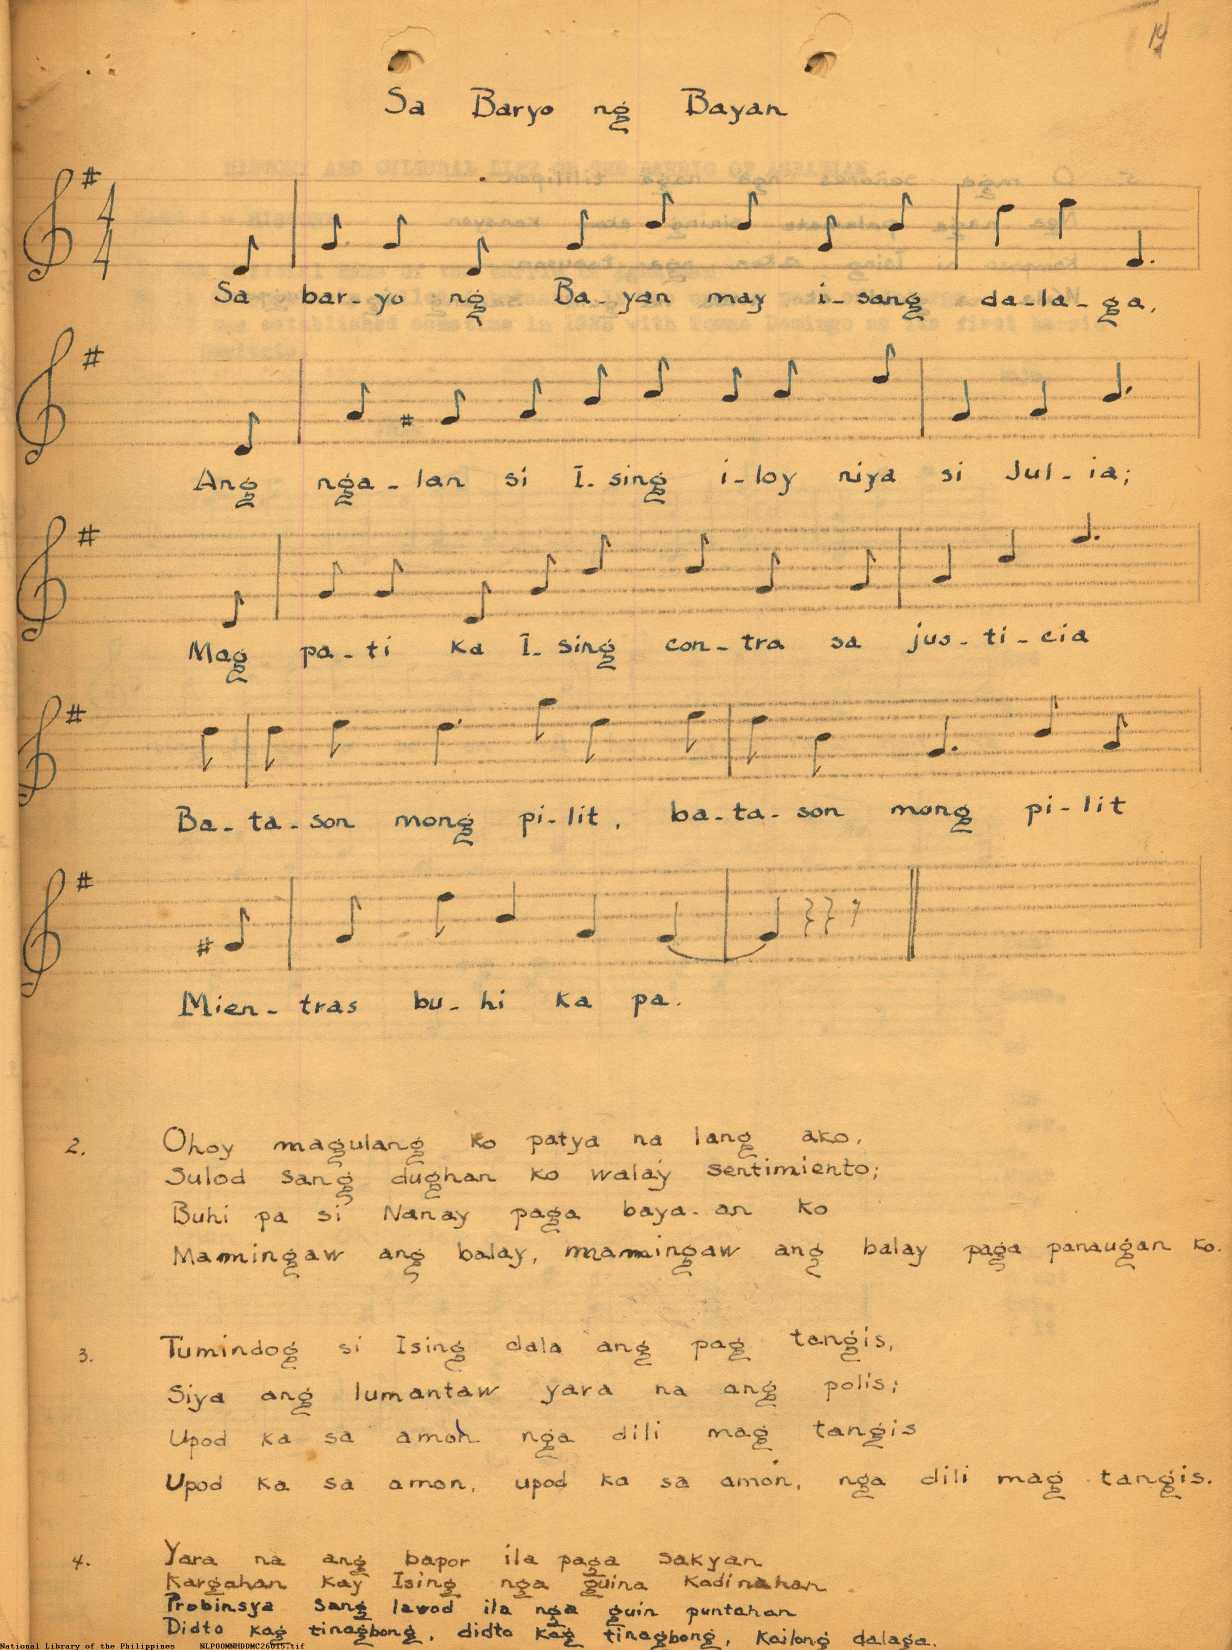 14
Sa Baryo ng Bayan
Sa bar-yo ng Ba-yan may i-sang da-la-ga,
Ang nga-lan si I-sing i-loy niya si Jul-ia;
Mag pa-ti ka I-sing con-tra sa jus-ti-cia
Ba-ta-son mong pi-lit, ba-ta-son mong pi-lit
Mien-tras bu-hi ka pa.
2. Ohoy magulang ko patya na lang ako,
Sulod sang dughan ko walay sentimiento;
Buhi pa si Nanay paga baya-an ko
Mamingaw ang balay, mamingaw ang balay paga panaugan ko.
3. Tumindog si Ising dala ang pag tangis,
Siya ang lumantaw yara na ang polis;
Upod ka sa amon nga dili mag tangis
Upod ka sa amon, upod ka sa amon, nga dili mag tangis.
4. Yara na ang bapor ila paga sakyan
Kargahan kay Ising nga guina kadinahan
Probinsya sang lawod ila nga guin puntahan
Didto kag tinagbong, didto kag tinagbong, kailong dalaga.
National Library of the Philippines NLPOOMNHDDMC26015.tif